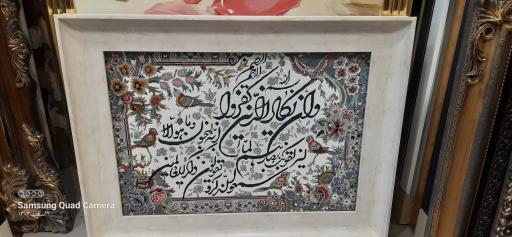 بسم الله الرحمن الرحیم
وان یکاد الذین کفروا
لیزلقونک بابصارهم لما
سمعوا الذکر و یقولون
انه لمجنون و ما هو الا
ذکر للعالمین
Samsung Quad Camera